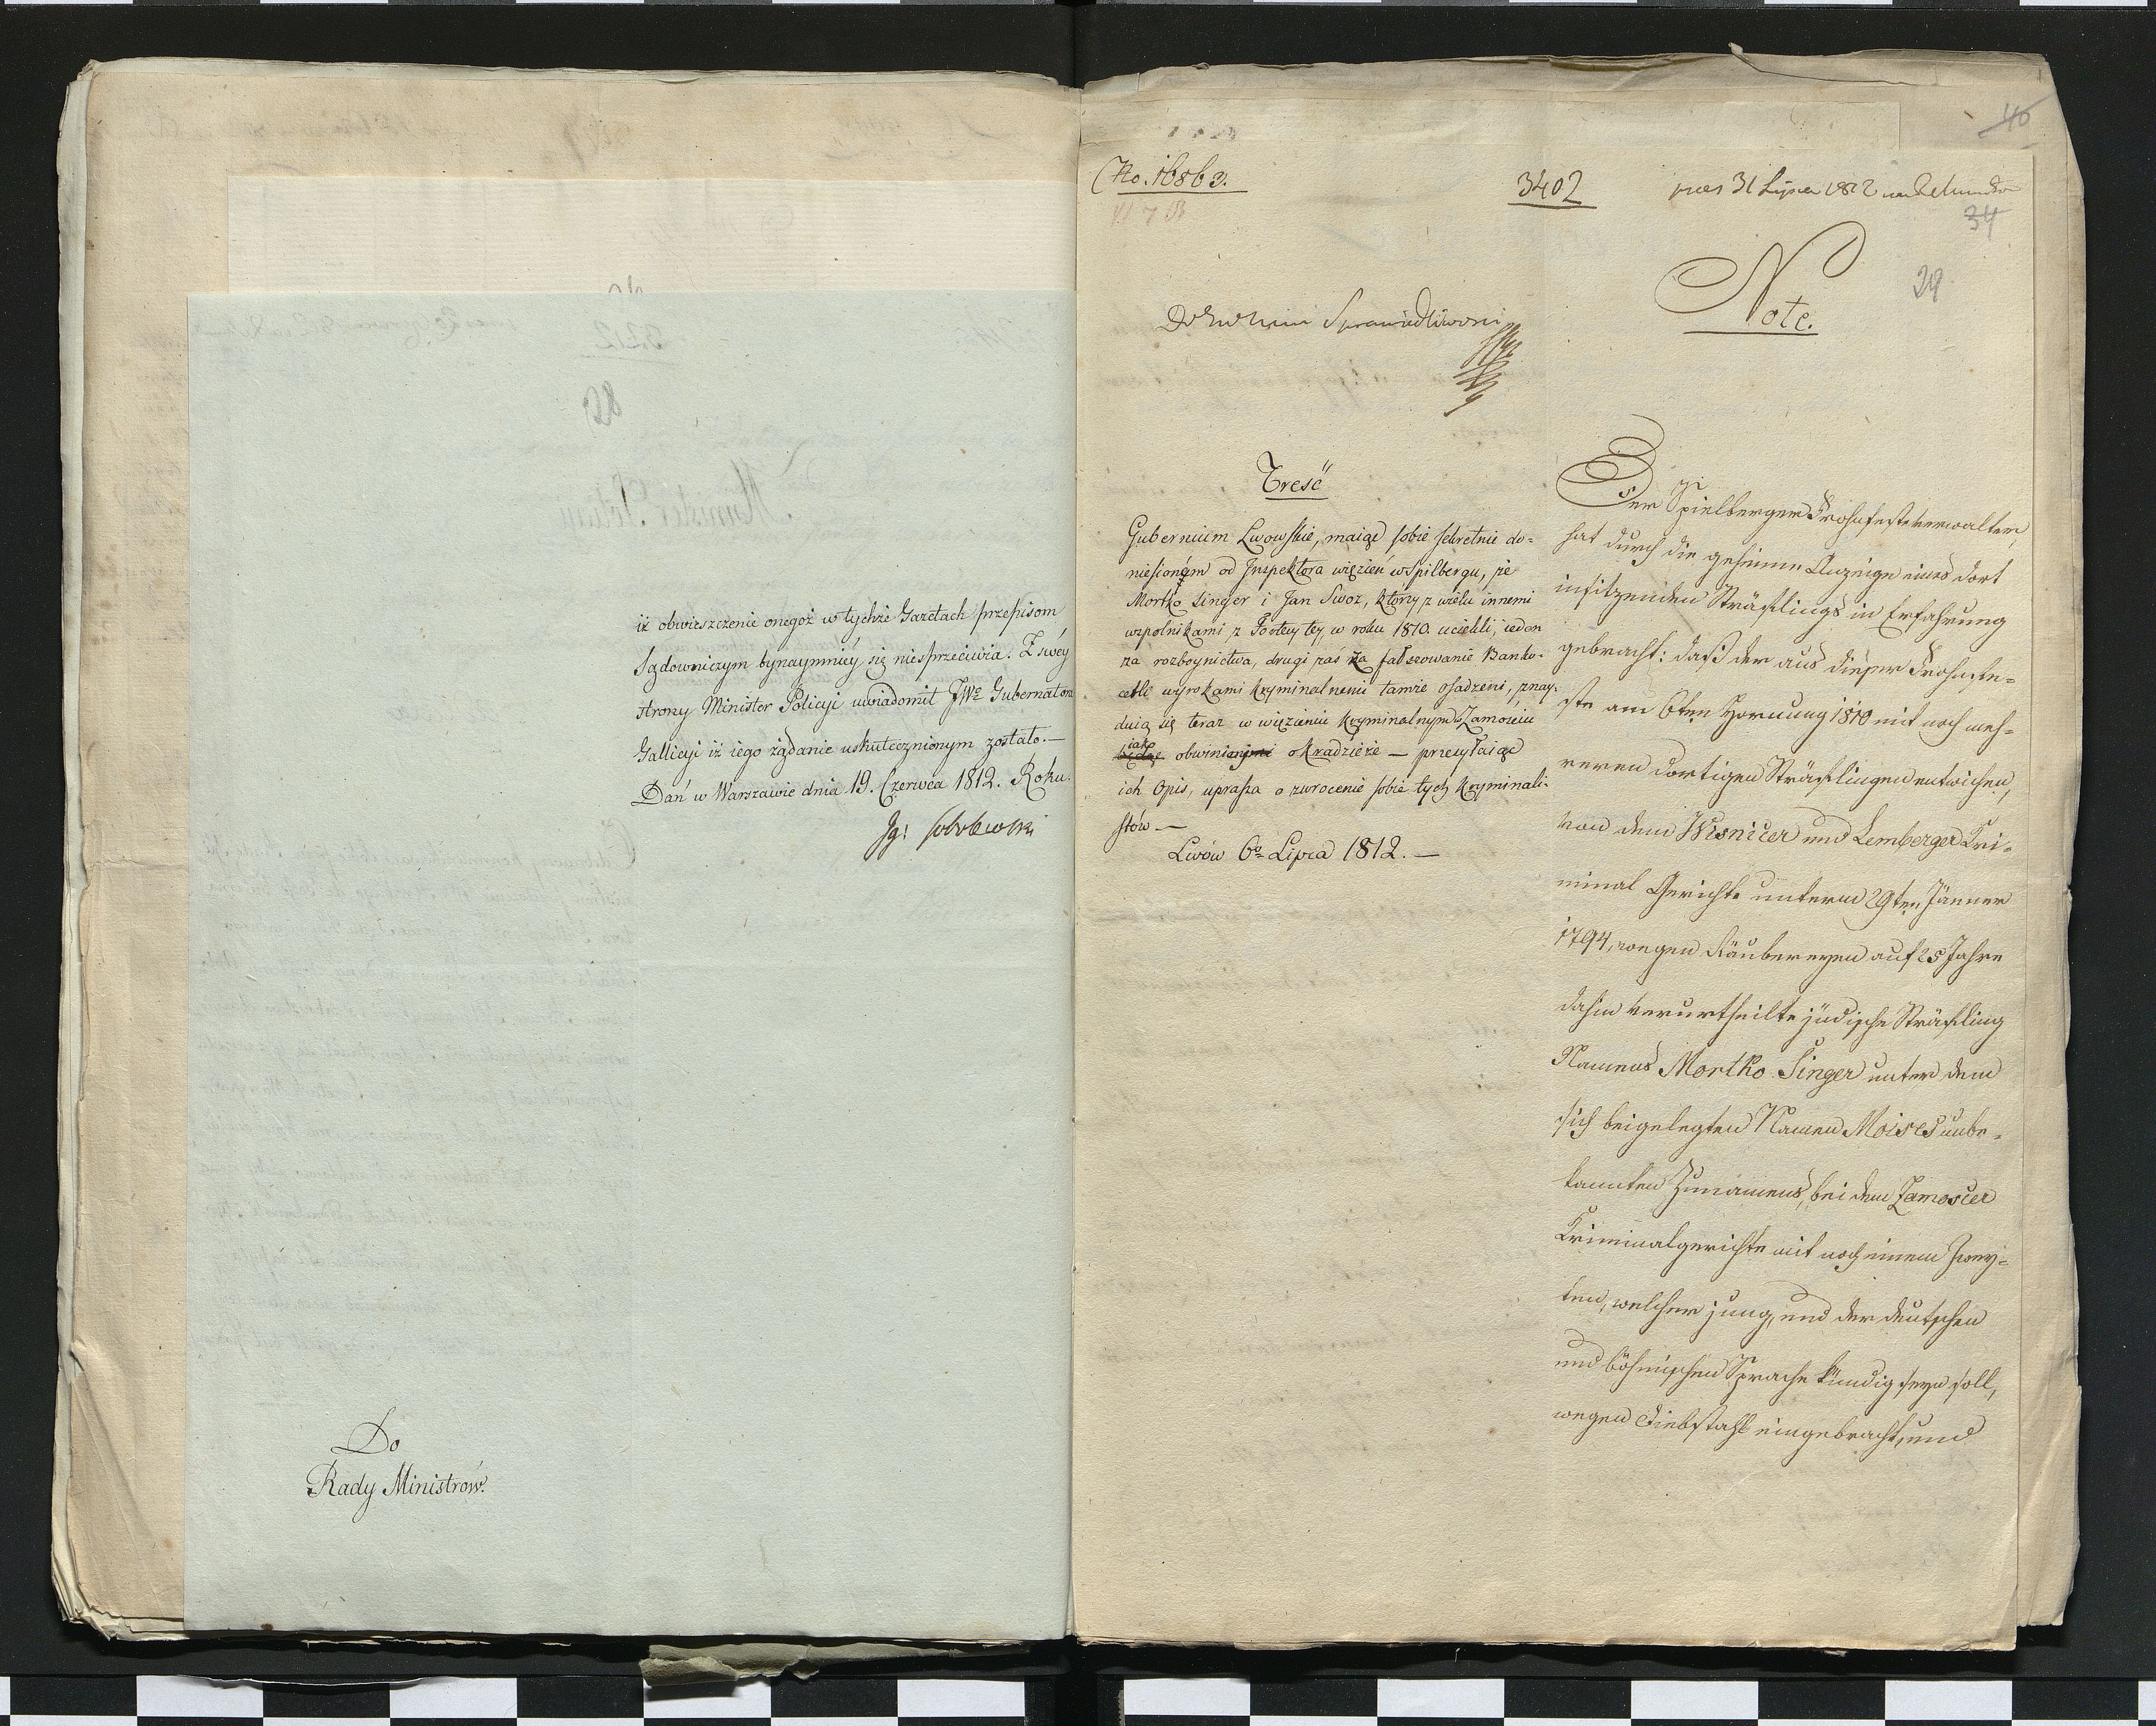 iż obwieszczenie onegoż w tychże Gazetach przepisom
Sądowniczym bynaymniéy się niesprzeciwia. Z swéy
strony Minister Policyi uwiadomił JWo Gubernatora
Gallicyi iż iego żądanie uskutecznionym zostało.—
Dań w Warszawie dnia 19. Czerwca 1812. Roku.
Ig: Sobolewski
Do
Rady Ministrów.
40
No. 16863.
3402
31 Lipca 1812
34
29
Note.
Sprawiedliwości
Treść
Gubernium Lwowskie, maiąc sobie sekretnie do=
niesionym od Inspektora więzień w Spilbergu, że
Mortko Singer i Jan Swoz, którzy z wielu innemi
wspolnikami z Fortecy tey w roku 1810. uciekli, ieden
za rozboynictwa, drugi zaś za fałszowanie Banko-
cetli wyrokami kryminalnemi tamże osadzeni, znay-
duią się teraz w więzieniu kryminalnym w Zamościu
iako obwinieni o kradzieże — przesyłaiąc
ich Opis, uprasza o zwrocenie sobie tych kryminali-
stów —
Lwów 6o Lipca 1812. —
Der Spielberger Frohnfesteverwalter
hat durch die geheime Anzeige eines dort
insitzenden Sträflings in Erfahrung
gebracht: daß der aus dieser Frohnfe-
ste am 6ten Hornung 1810 mit noch meh-
reren dortigen Sträflingen entwichen,
von dem Wisnicer und Lemberger Kri-
minal Gerichte unterm 29ten Jänner
1794, wegen Räubereyen auf 25 Jahre
dahin verurtheilte jüdische Sträfling
Namens Mortko Singer unter dem
sich beigelegten Namen Moises unbe-
kannten Zunamens, bei dem Zamoscer
Kriminalgerichte mit noch einem Zwey-
ten, welcher jung, und der deutschen
und böhmischen Sprache kündig seyn soll,
wegen Diebstahl eingebracht, und